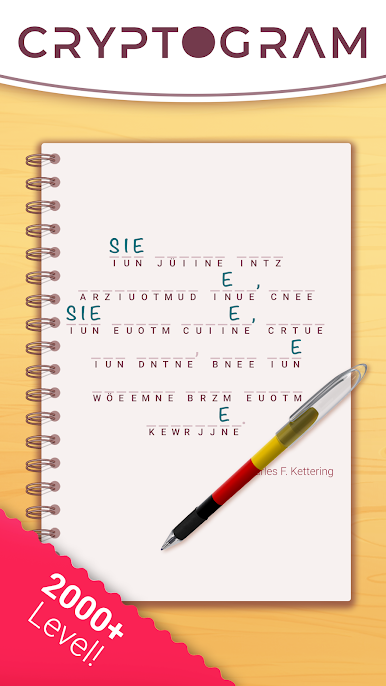 CRYPTOGRAM
SIE
IUN JÜIINE INTZ
E ,
ARZIUOTMUD INUE CNEE
SIE E ,
IUN EUOTM CUIINE CRTUE
, E
IUN DNTNE BNEE IUN
WÖEEMNE BRZM EUOTM
E .
KEWRJJNE
F. Kettering
2000+
Level!